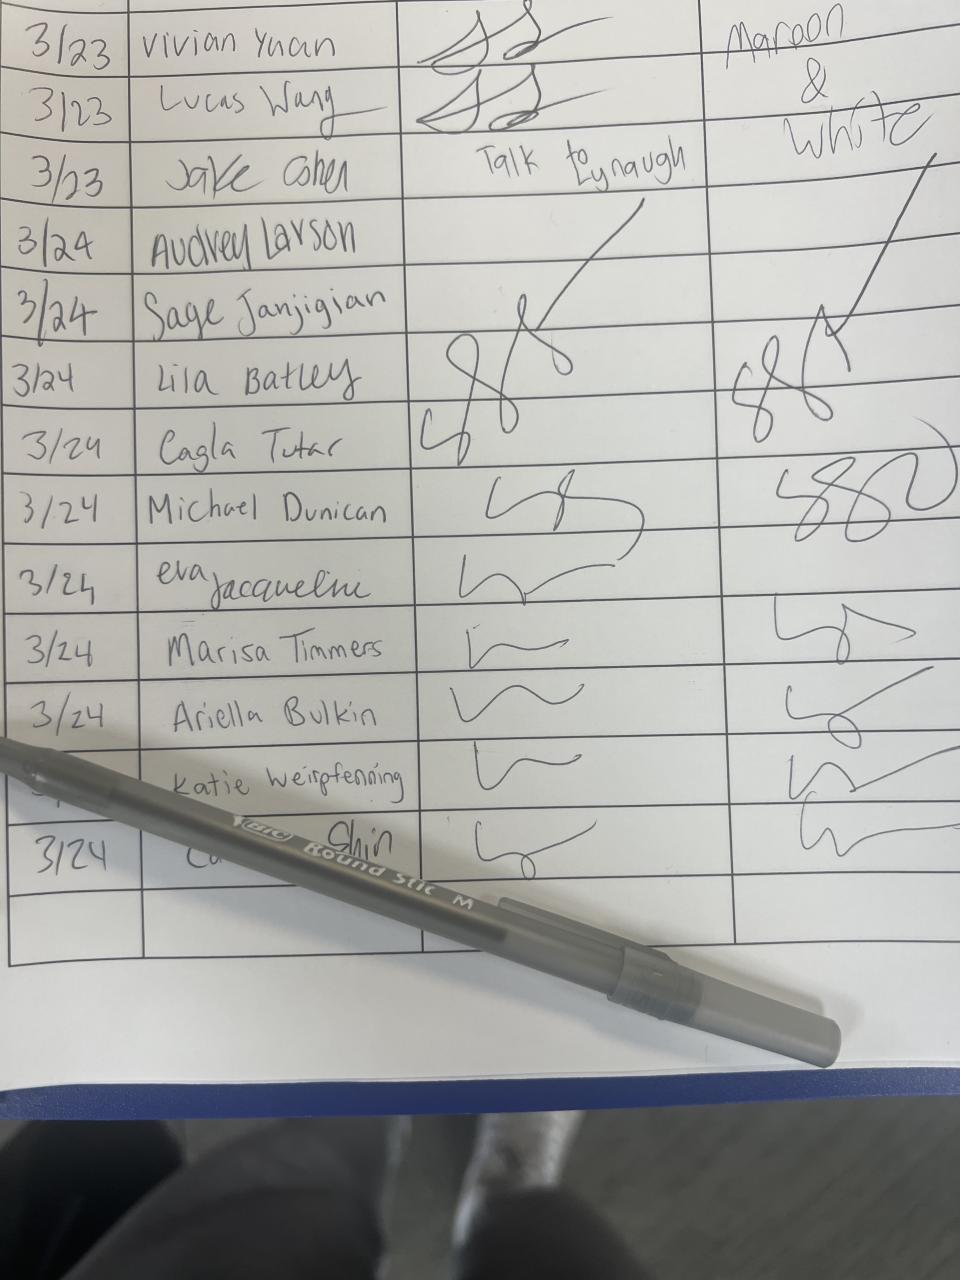 3/23 Vivian Yuan Maroon
&
3/23 Lucas Wang White
3/23 Jake Cohen Talk to Lynaugh
3/24 Audrey Larson
3/24 Sage Janjigian
3/24 Lila Batley
3/24 Cagla Tutar
3/24 Michael Dunican
3/24 eva Jacqueline
3/24 Marisa Timmers
3/24 Ariella Bulkin
Katie Weirpfenning
3/24 Shin
BIC Round Stic M